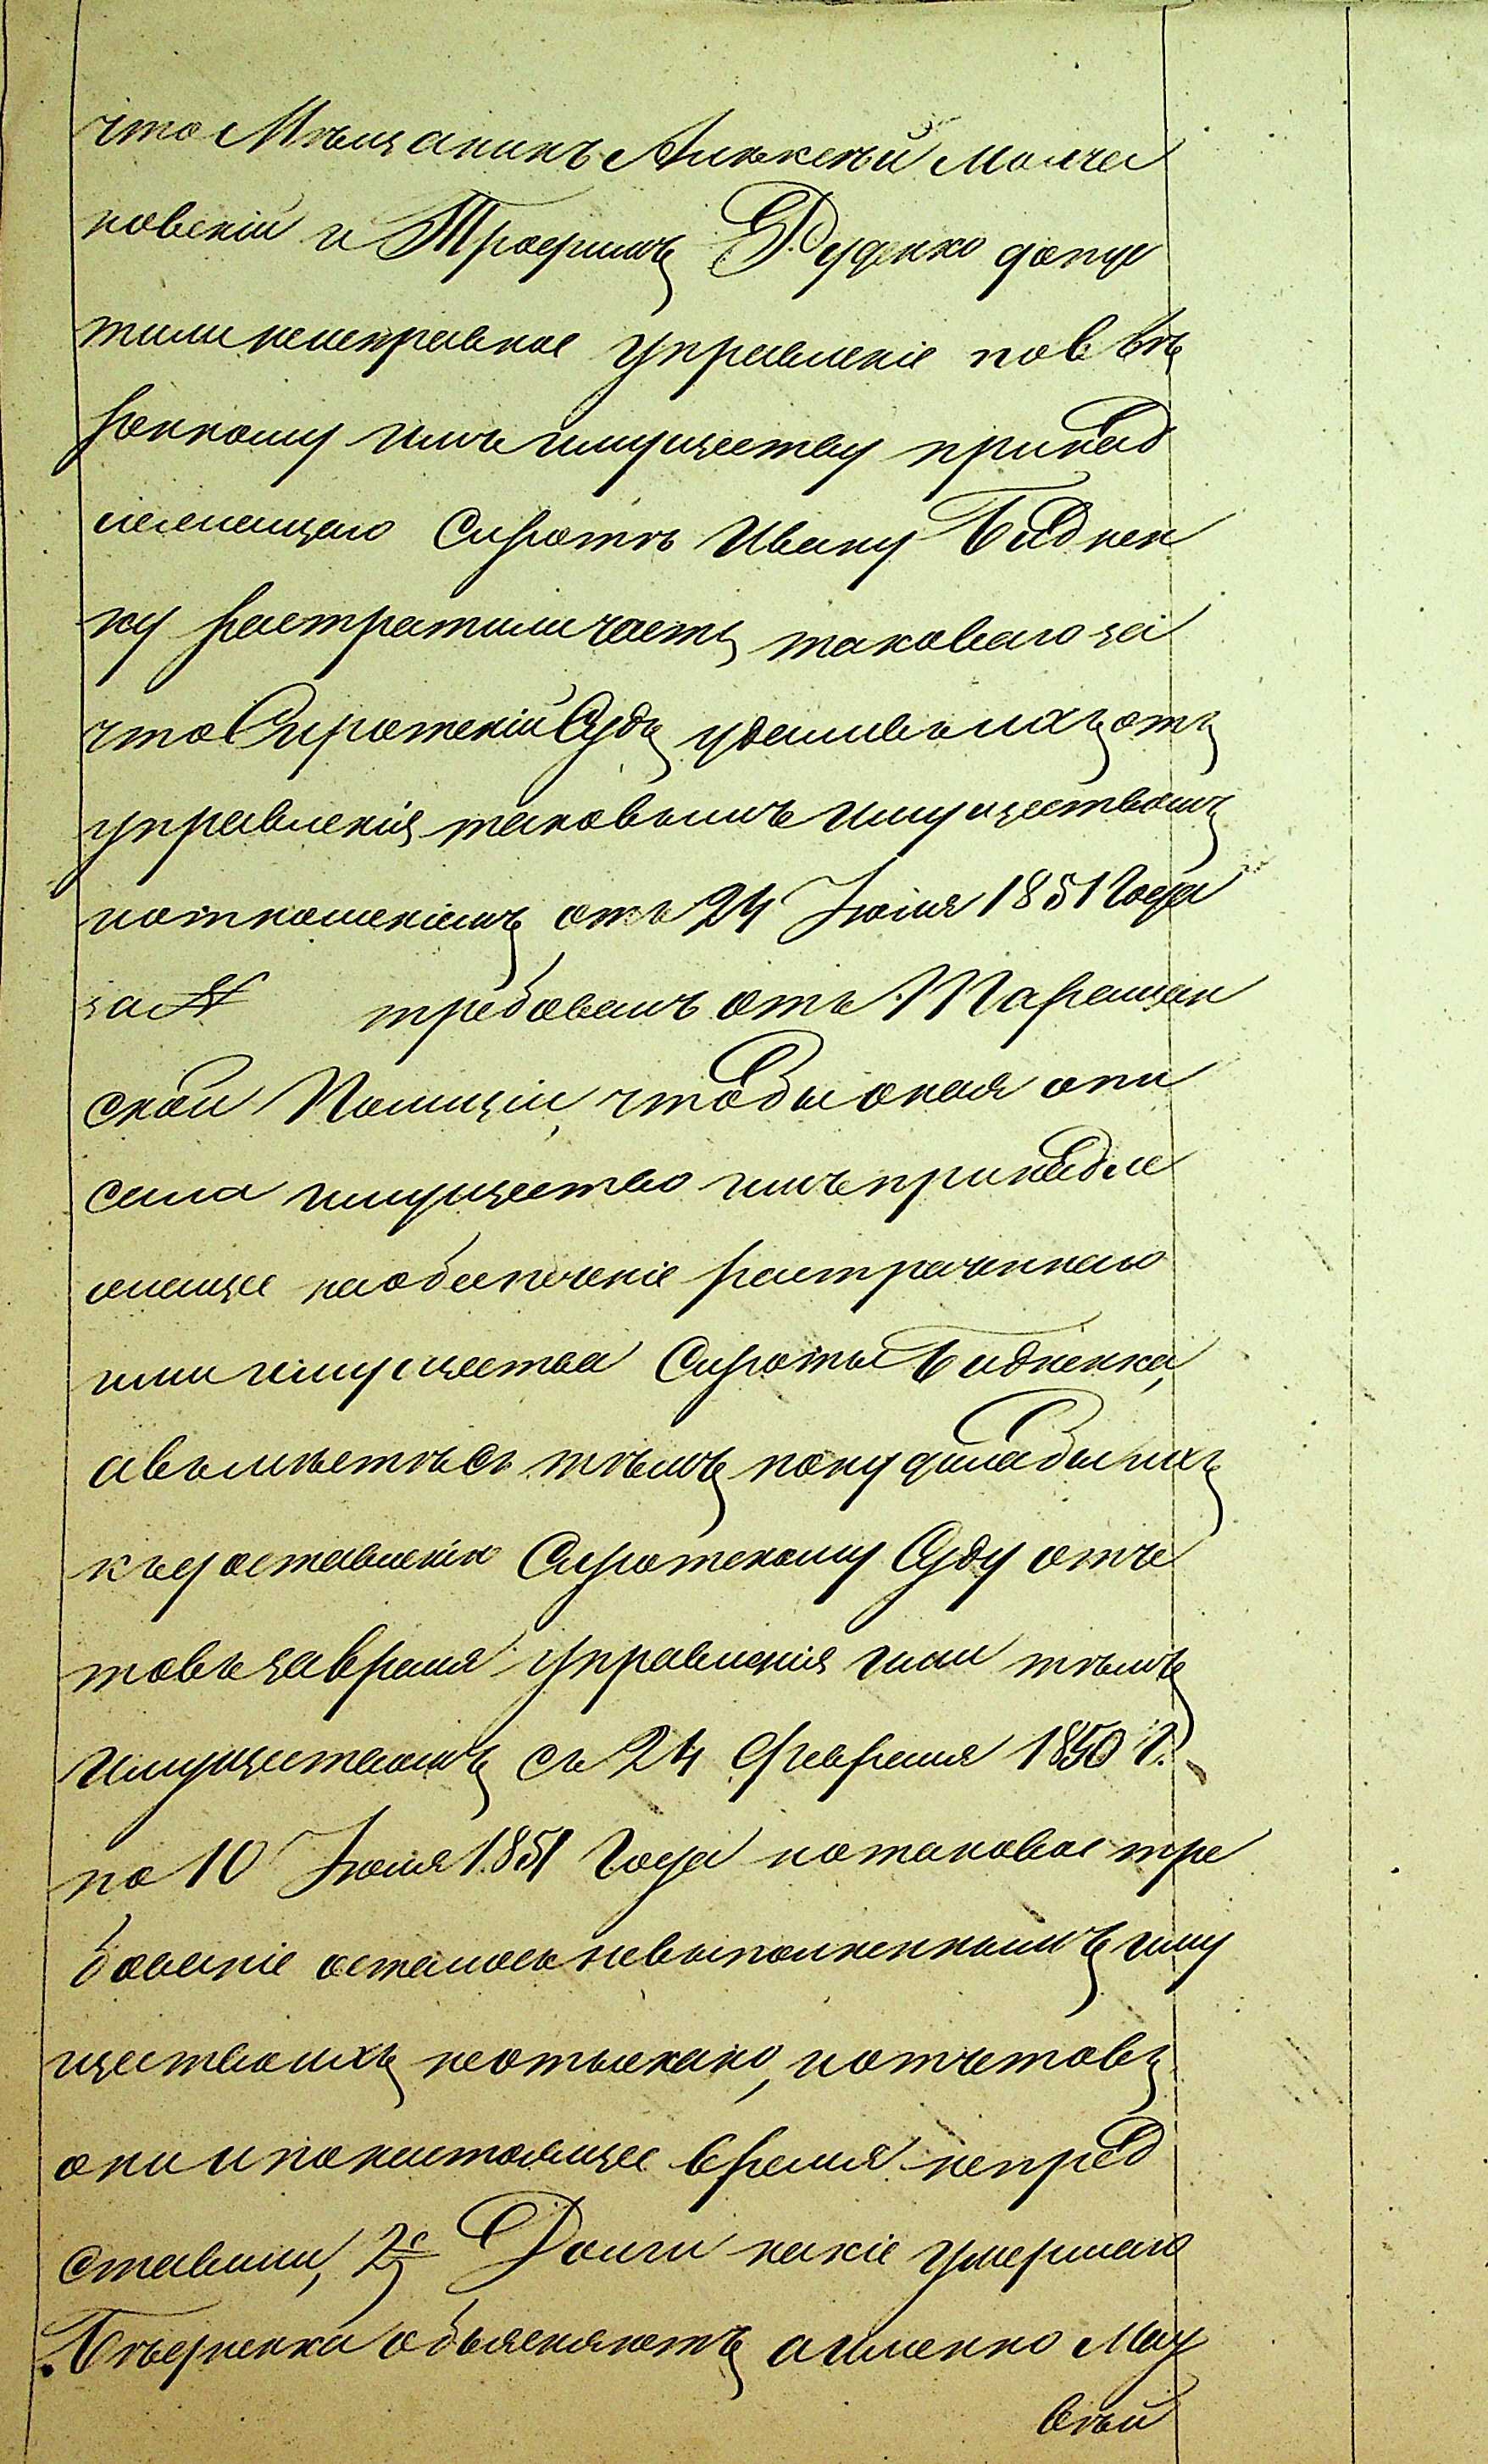 что Мѣщанинъ Алѣксѣй Молча
новскій и Трофимъ Руденко допус
тили неисправное управленіе по ввѣ
ренному имъ имуществу принад
лежащаго Сиротѣ Ивану Биднен
ку растратили часть таковаго за
что Сиротскій Судъ удаливъ ихъ отъ
управленія таковымъ имуществомъ
и отношеніемъ отъ 24 Іюля 1851 Года
за № требовалъ отъ Таращан
ской Полиціи, чтобы оная опи
сала имущество имъ принадле
жащее на обезпеченіе растраченнаго
ими имущества Сироты Бидненка,
а вмѣстѣ съ тѣмъ понудила бы ихъ
къ доставленію Сиротскому Суду отче
товъ за время управленія ими тѣмъ
Имуществомъ съ 24 Февраля 1850 г.
по 10 Іюля 1851 Года но таковое тре
бованіе осталось невыполненнымъ иму
щество ихъ неотыскано, и отчетовъ
они и по настоящее время непред
ставили, 2е Долги какіе умершаго
Бѣдненка объясняютъ а именно Мат
вѣй